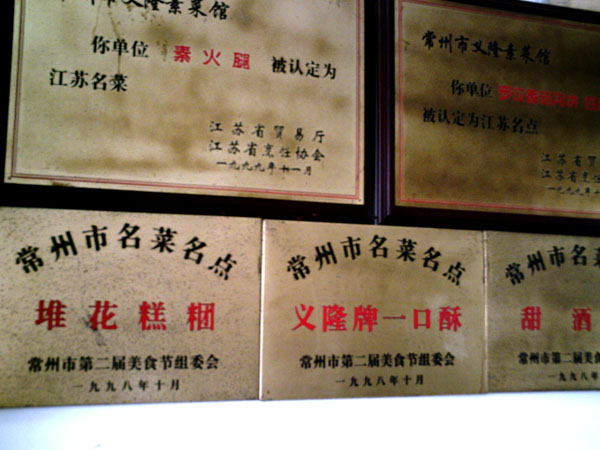 州市义隆素菜馆
你单位 素火腿 被认定为
江苏名菜
江苏省贸易厅
江苏省烹饪协会
一九九九年十一月
常州市义隆素菜馆
你单位
被认定为江苏名点
江苏省贸
江苏省烹饪
一九九九年十
常州市名菜名点
堆花糕
常州市第二届美食节组委会
一九九八年十月
常州市名菜名点
义隆牌一口酥
常州市第二届美食节组委会
一九九八年十月
常州市名
甜酒
常州市第二届美食
一九九八年